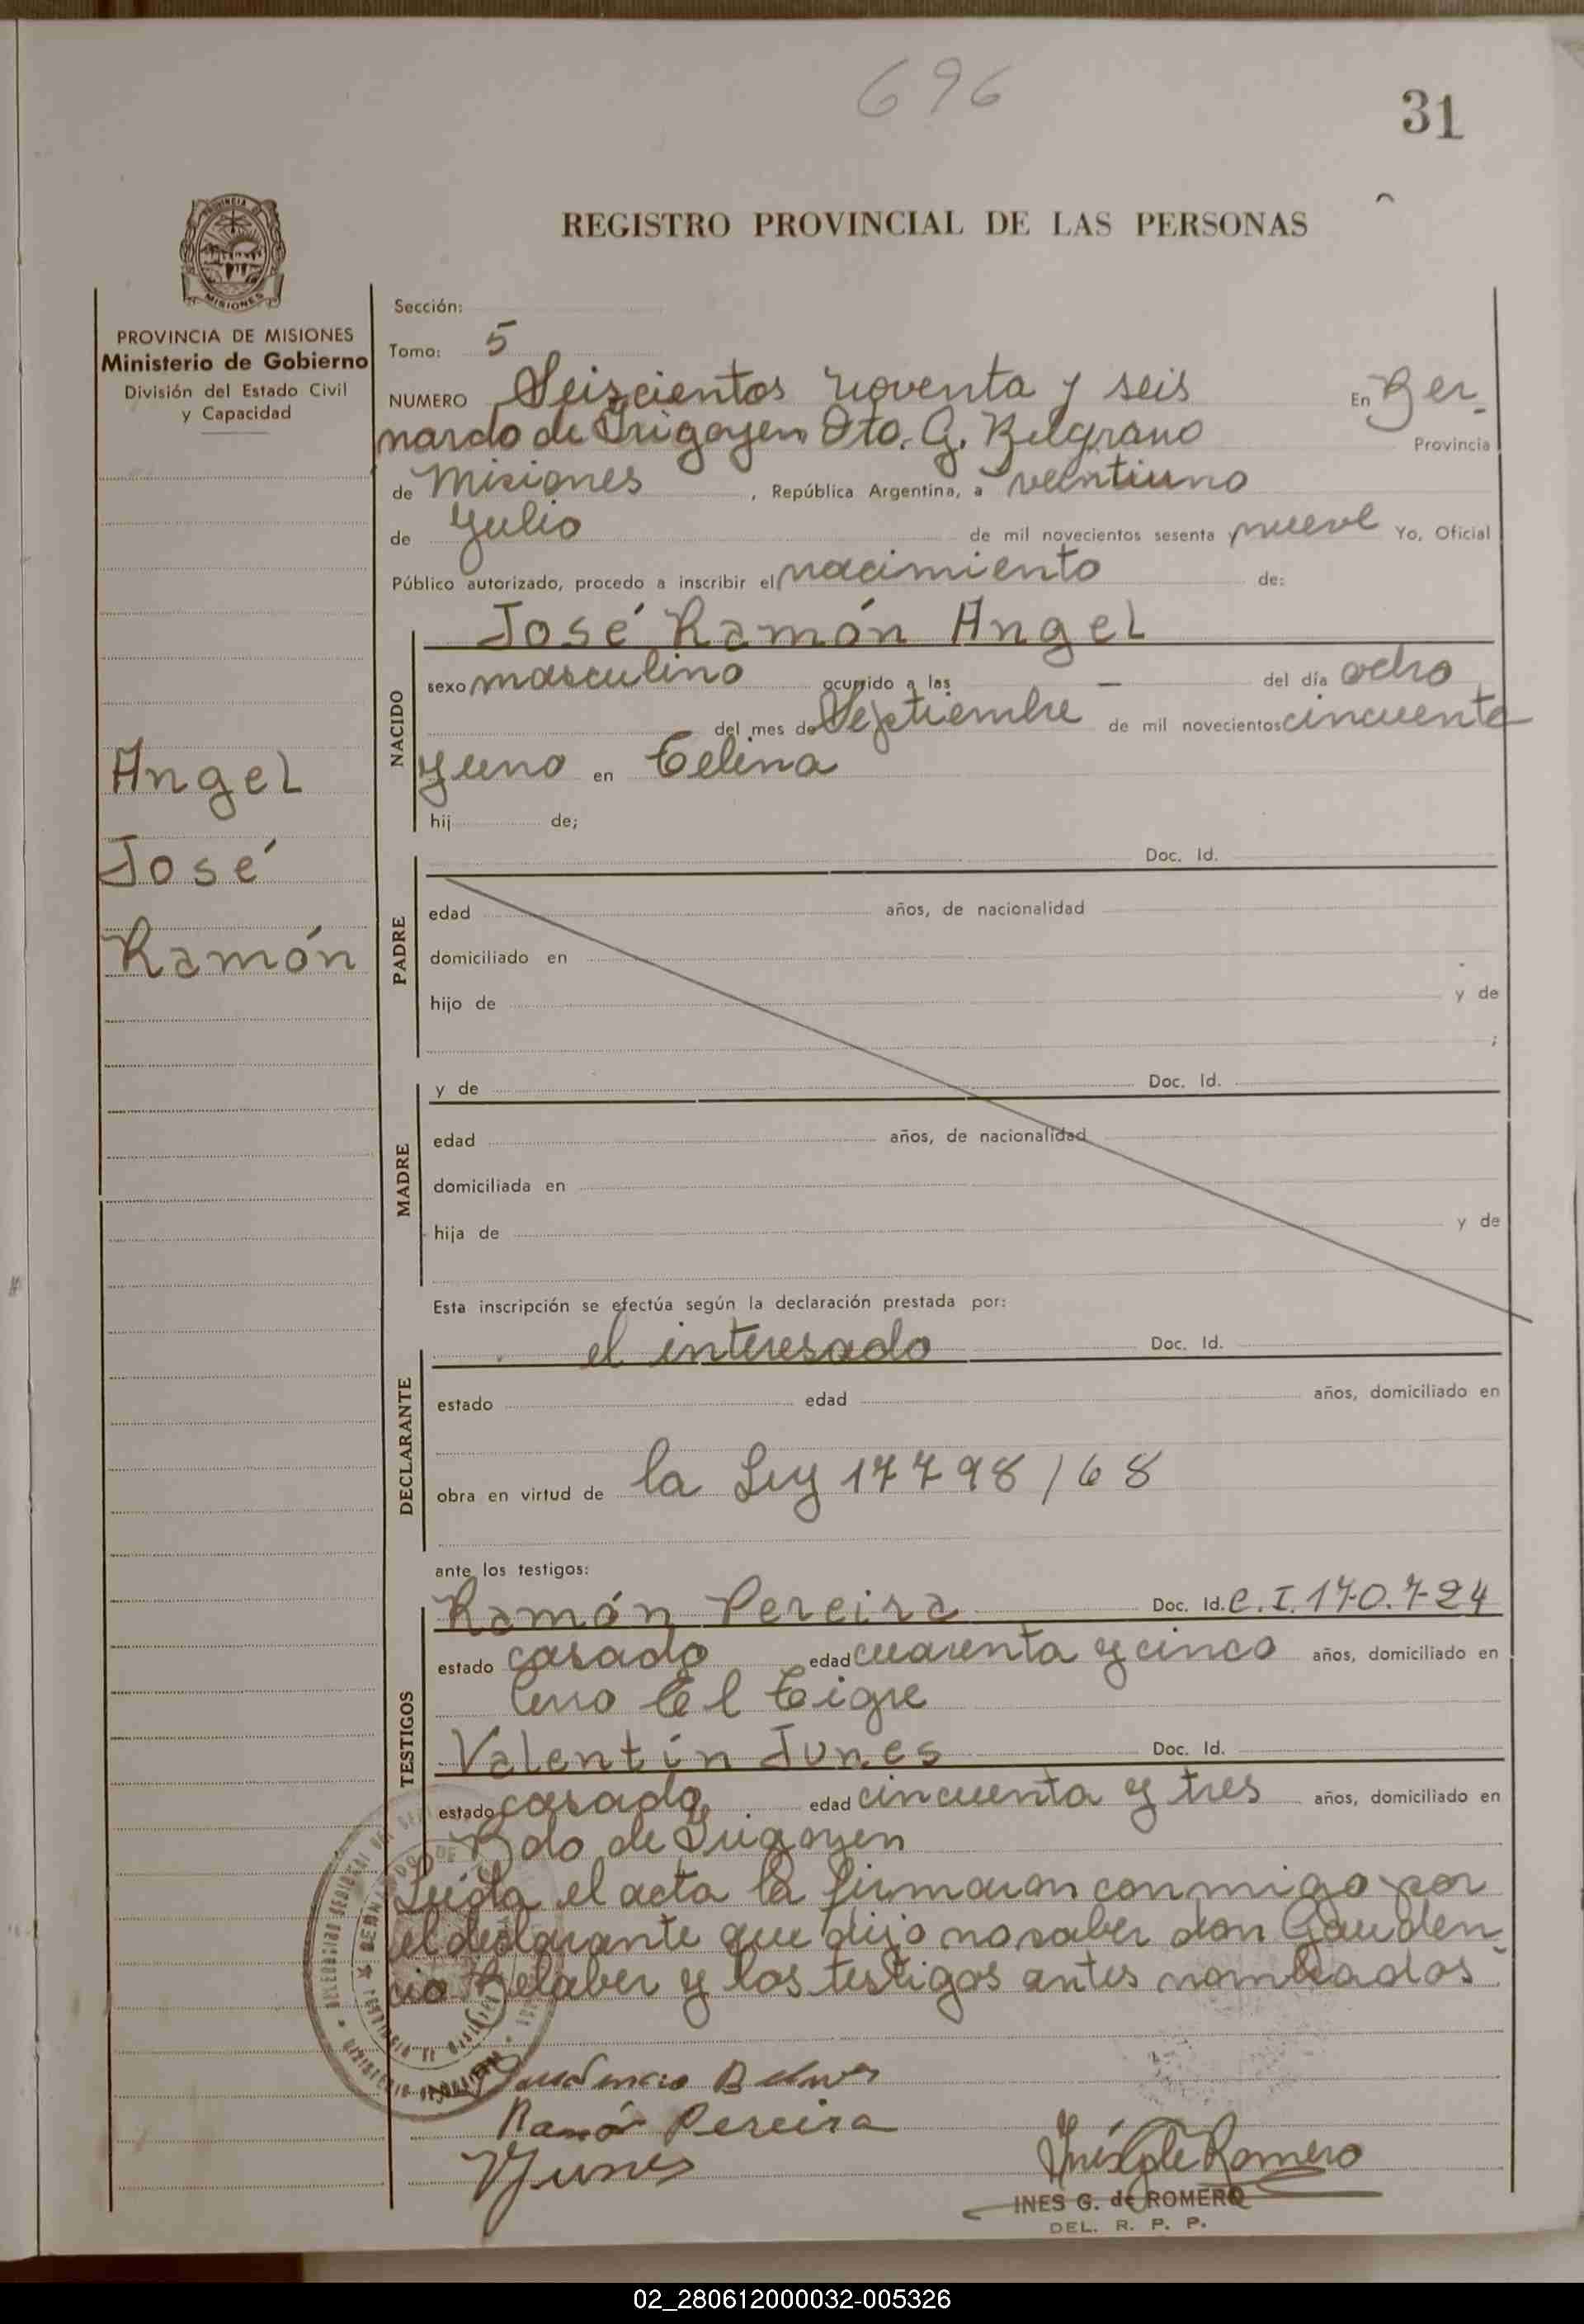 696
31
REGISTRO PROVINCIAL DE LAS PERSONAS
PROVINCIA DE MISIONES
Ministerio de Gobierno
División del Estado Civil
y Capacidad
Angel
José
Ramón
Sección:
Tomo: 5
NUMERO Seiscientos noventa y seis En Ber-
nardo de Irigoyen Dto. G. Belgrano Provincia
de Misiones, República Argentina, a veintiuno
de Julio de mil novecientos sesenta nueve Yo, Oficial
Público autorizado, procedo a inscribir el nacimiento de:
NACIDO
José Ramón Angel
sexo masculino ocurrido a las — del día ocho
del mes de Septiembre de mil novecientos cincuenta
y uno en Celina
hij de;
PADRE
Doc. Id.
edad años, de nacionalidad
domiciliado en
hijo de y de
;
MADRE
y de Doc. Id.
edad años, de nacionalidad
domiciliada en
hija de y de
Esta inscripción se efectúa según la declaración prestada por:
DECLARANTE
el interesado Doc. Id.
estado edad años, domiciliado en
obra en virtud de la Ley 17798/68
ante los testigos:
TESTIGOS
Ramón Pereira Doc. Id. C.I. 170.724
estado casado edad cuarenta y cinco años, domiciliado en
Cerro El Tigre
Valentín Junes Doc. Id.
estado casado edad cincuenta y tres años, domiciliado en
Bdo de Irigoyen
Leída el acta la firmaron conmigo por
el declarante que dijo no saber don Gauden
cio y los testigos antes nombrados.
Ramón Pereira
VJunes
Inés G de Romero
INES G. de ROMERO
DEL. R. P. P.
02_280612000032-005326